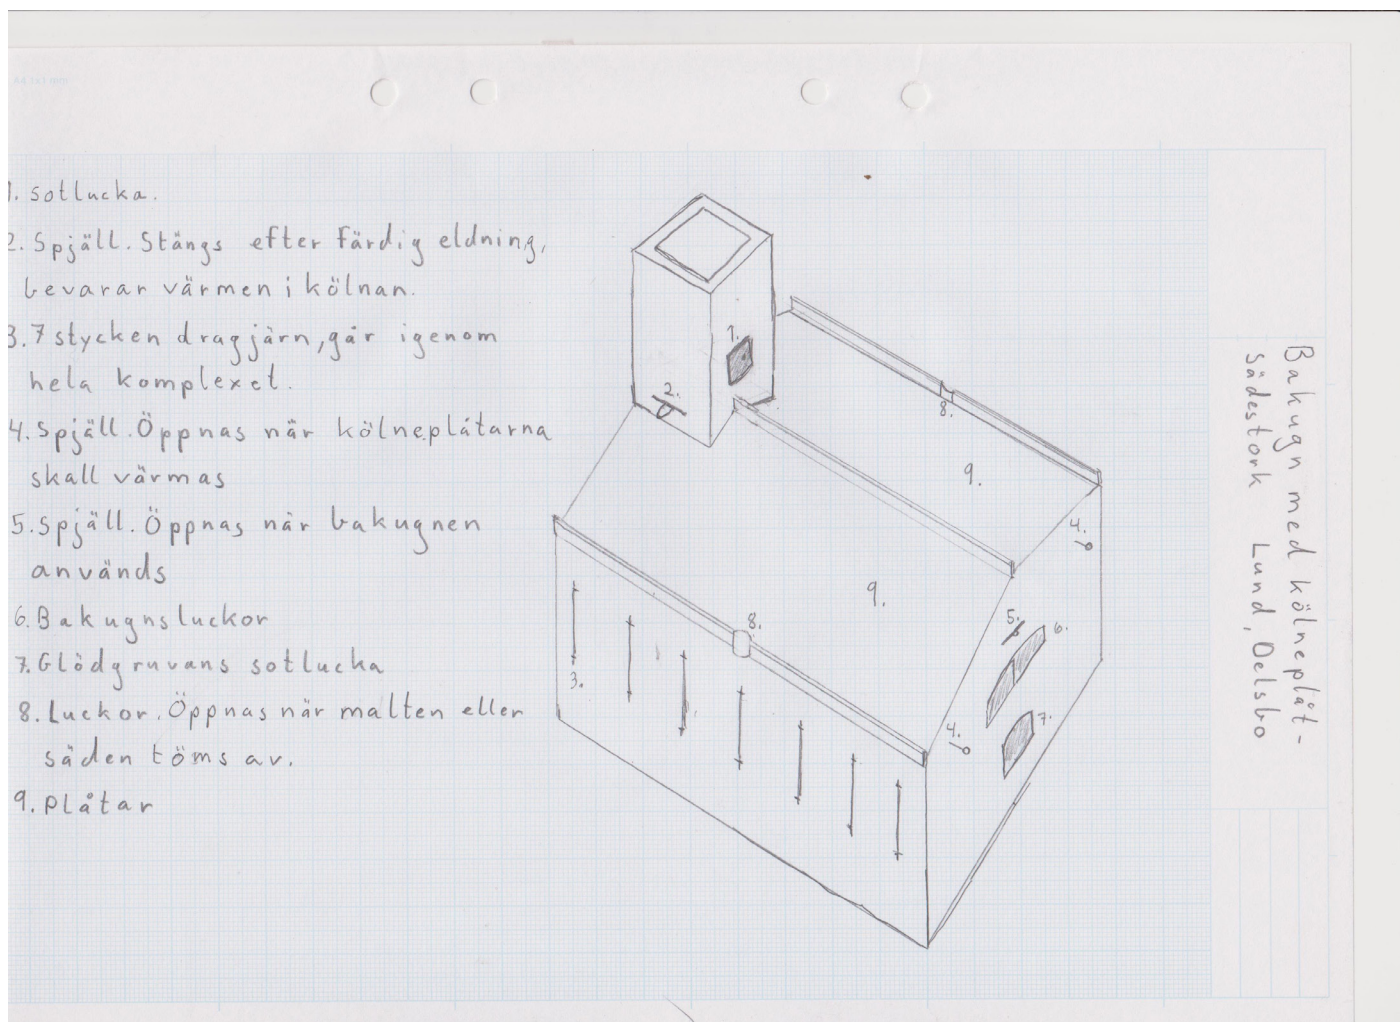 1. Sotlucka.
2. Spjäll. Stängs efter färdig eldning,
bevarar värmen i kölnan.
3. 7 stycken dragjärn, går igenom
hela komplexet.
4. Spjäll. Öppnas när kölneplåtarna
skall värmas
5. Spjäll. Öppnas när bakugnen
används
6. Bakugnsluckor
7. Glödgruvans sotlucka
8. Luckor. Öppnas när malten eller
säden töms av.
9. Plåtar
1.
2.
8.
9.
4.
9.
5.
6.
8.
3.
7.
4.
Bakugn med kölneplåt-
sädestork Lund, Delsbo